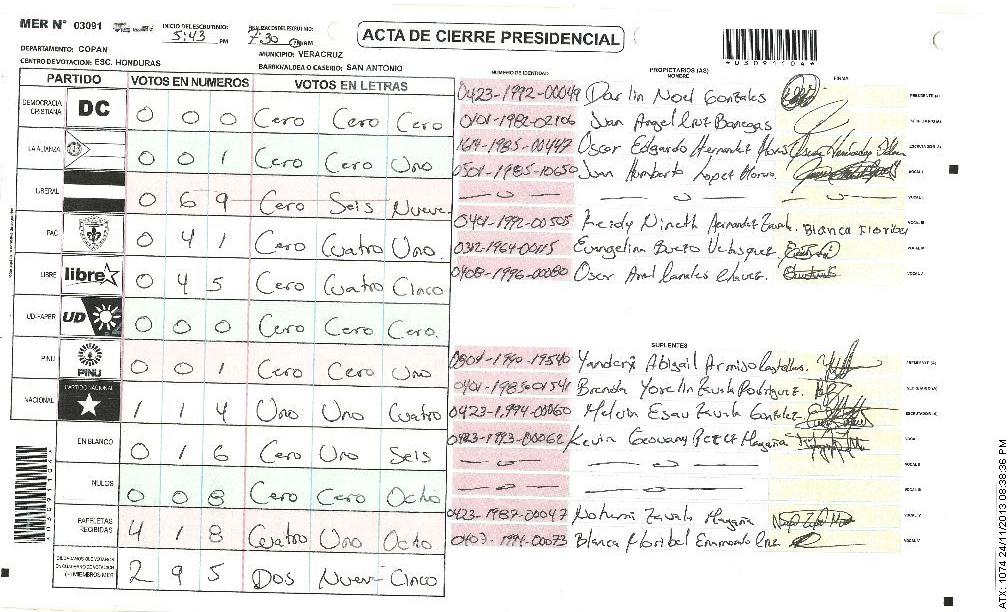 MER N° 03091
INICIO DEL ESCRUTINIO: 5:43 PM
7:30 PM/AM
ACTA DE CIERRE PRESIDENCIAL
*03091104*
DEPARTAMENTO: COPAN
MUNICIPIO: VERACRUZ
CENTRO DE VOTACION: ESC. HONDURAS
BARRIO/ALDEA O CASERIO: SAN ANTONIO
PARTIDO VOTOS EN NUMEROS VOTOS EN LETRAS
DEMOCRACIA CRISTIANA DC 0 0 0 Cero Cero Cero
LA ALIANZA 0 0 1 Cero Cero Uno
LIBERAL 0 6 9 Cero Seis Nueve
PAC 0 4 1 Cero Cuatro Uno
LIBRE libre 0 4 5 Cero Cuatro Cinco
UD-FAPER UD 0 0 0 Cero Cero Cero.
PINU PINU 0 0 1 Cero Cero Uno
NACIONAL PARTIDO NACIONAL 1 1 4 Uno Uno Cuatro
EN BLANCO 0 1 6 Cero Uno Seis
NULOS 0 0 8 Cero Cero Ocho
PAPELETAS RECIBIDAS 4 1 8 Cuatro Uno Ocho
(+) MIEMBROS MER 2 9 5 Dos Nueve Cinco
NUMERO DE IDENTIDAD PROPIETARIOS (AS) NOMBRE FIRMA
0423-1992-00049 Darlin Noel Gonzales PRESIDENTE (A)
0401-1982-02106 Juan Angel Cruz Banegas SECRETARIO (A)
1614-1985-00447 Oscar Edgardo Hernandez ESCRUTADOR (A)
0501-1985-10650 Juan Humberto Lopez VOCAL I
— 0 — — 0 — — 0 — VOCAL II
0401-1992-00505 Leidy Nineth Hernandez Blanca Floribel VOCAL III
0312-1964-00115 Evangelina Bueso Velasquez VOCAL IV
0408-1996-00080 Oscar Canales VOCAL V
SUPLENTES
0801-1990-19540 Abigail PRESIDENTE (A)
0401-1985-01541 Brenda Yoselin Zavala Rodriguez. SECRETARIO (A)
0423-1994-00060 Melvin Esau Zavala Gonzalez ESCRUTADOR (A)
0423-1993-00062 Kevin Geovany Perez VOCAL I
— 0 — — 0 — VOCAL II
— 0 — — 0 — VOCAL III
0423-1987-00047 Zavala VOCAL IV
0407-1994-00073 Blanca Floribel VOCAL V
*03091104*
ATX: 1074 24/11/2013 08:38:36 PM